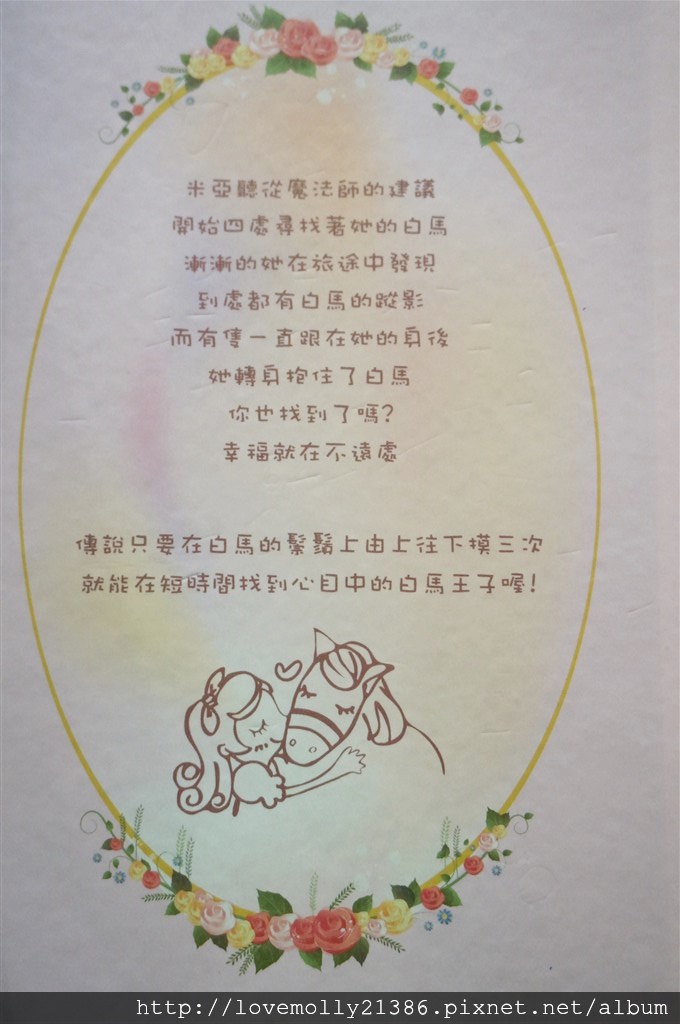 米亞聽從魔法師的建議
開始四處尋找著她的白馬
漸漸的她在旅途中發現
到處都有白馬的蹤影
而有隻一直跟在她的身後
她轉身抱住了白馬
你也找到了嗎?
幸福就在不遠處
傳說只要在白馬的鬃鬚上由上往下摸三次
就能在短時間找到心目中的白馬王子喔!
http://lovemolly21386.pixnet.net/album